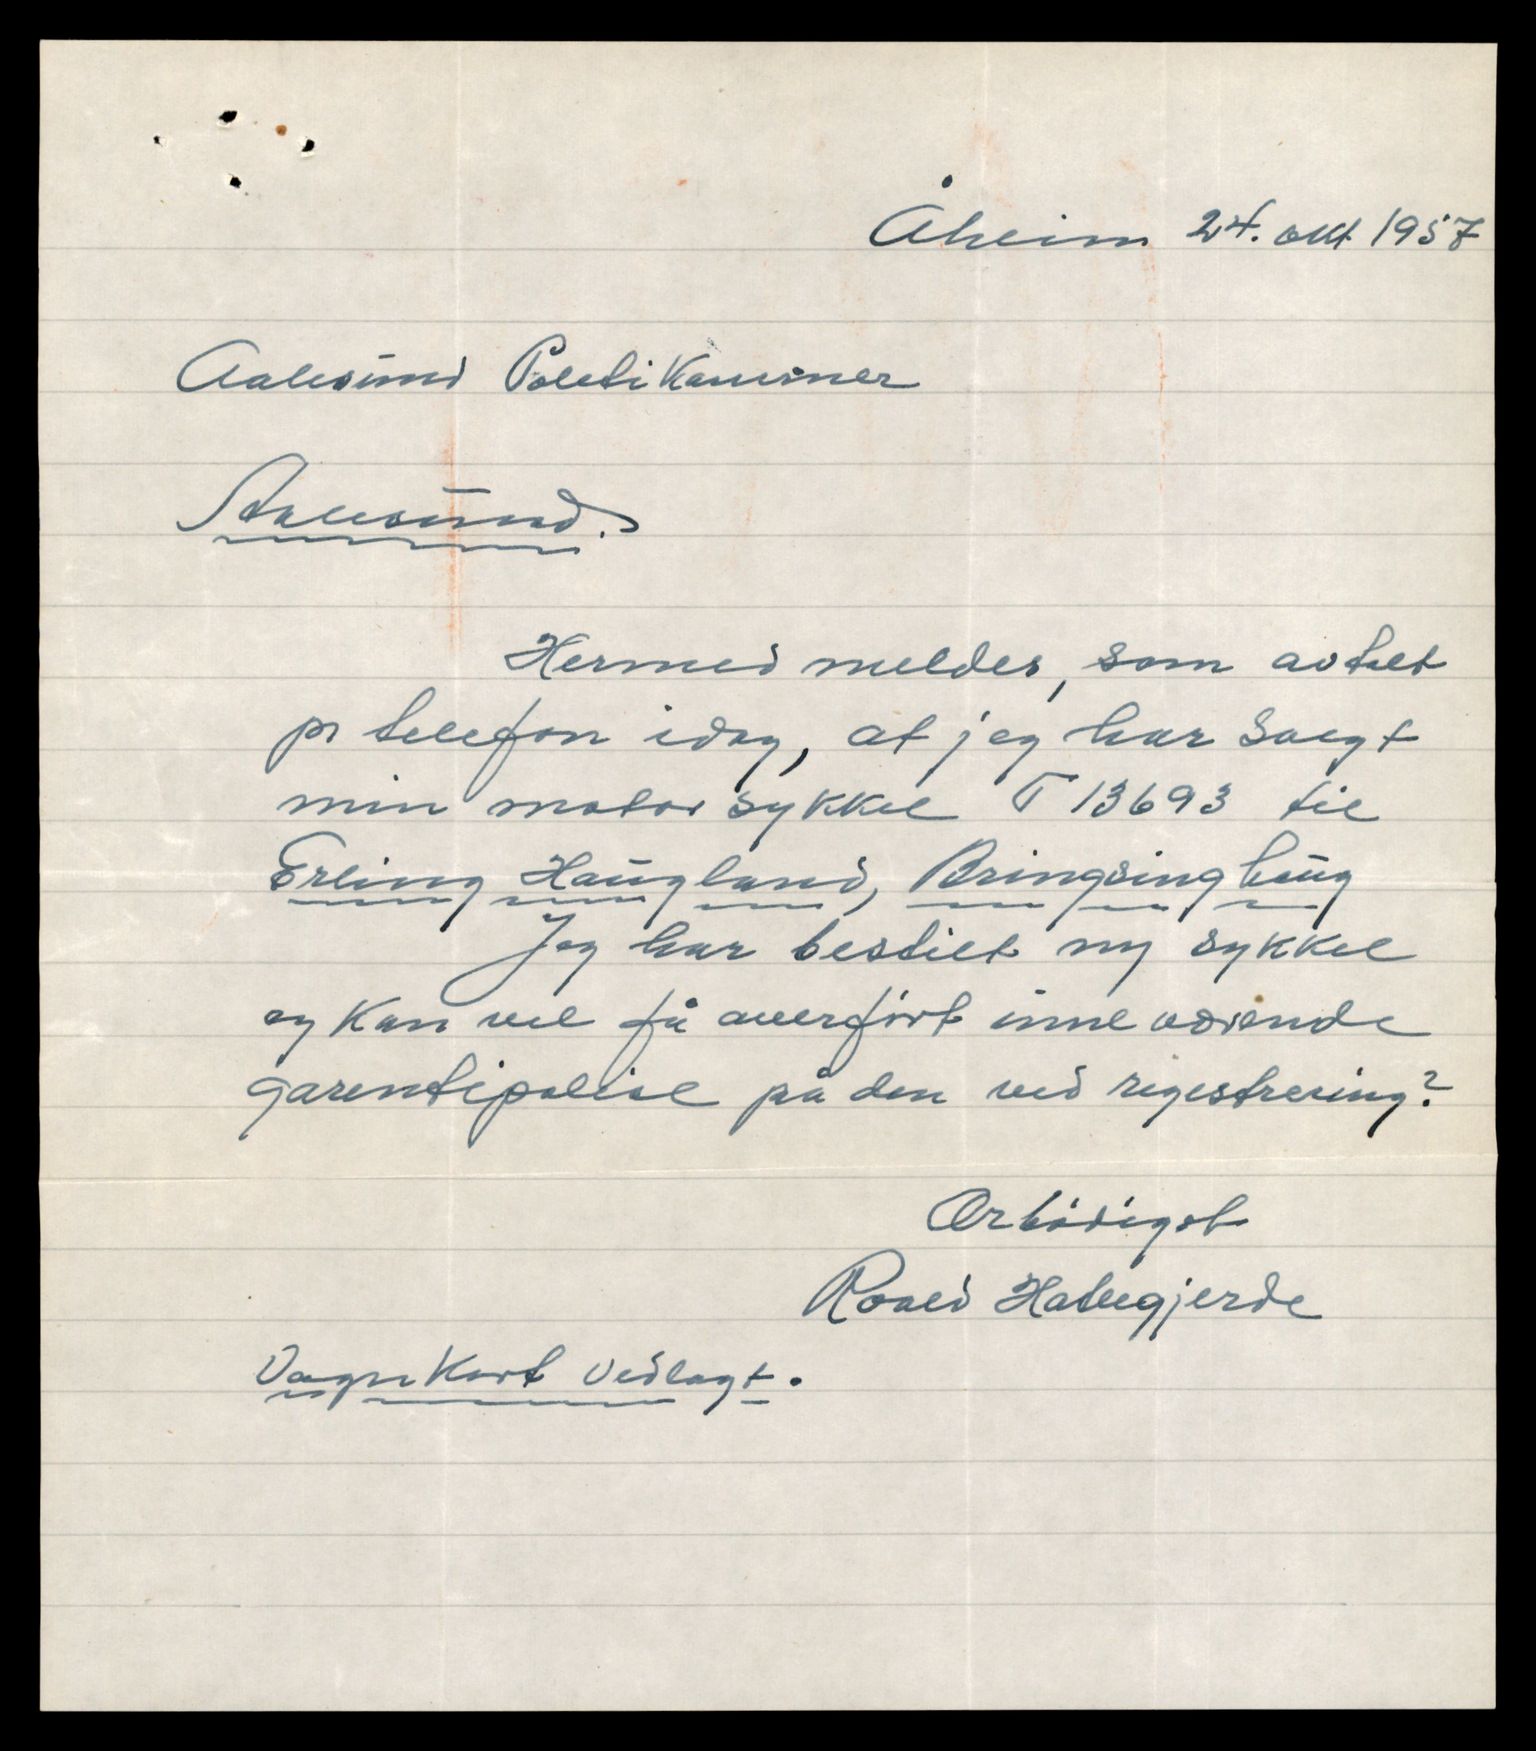 Åheim 24. okt 1957
Aalesund Politikammer
Aalesund.
Hermed meldes, som avtalt
pr telefon idag, at jeg har salgt
min motorsykkel T 13693 til
Erling Haugland, Bringsinghaug
Jeg har bestilt ny sykkel
og kan vel få overført inneværende
garentipolise på den ved regestrering?
Ærbødigst
Roald Hatlegjerde
Vognkort vedlagt.